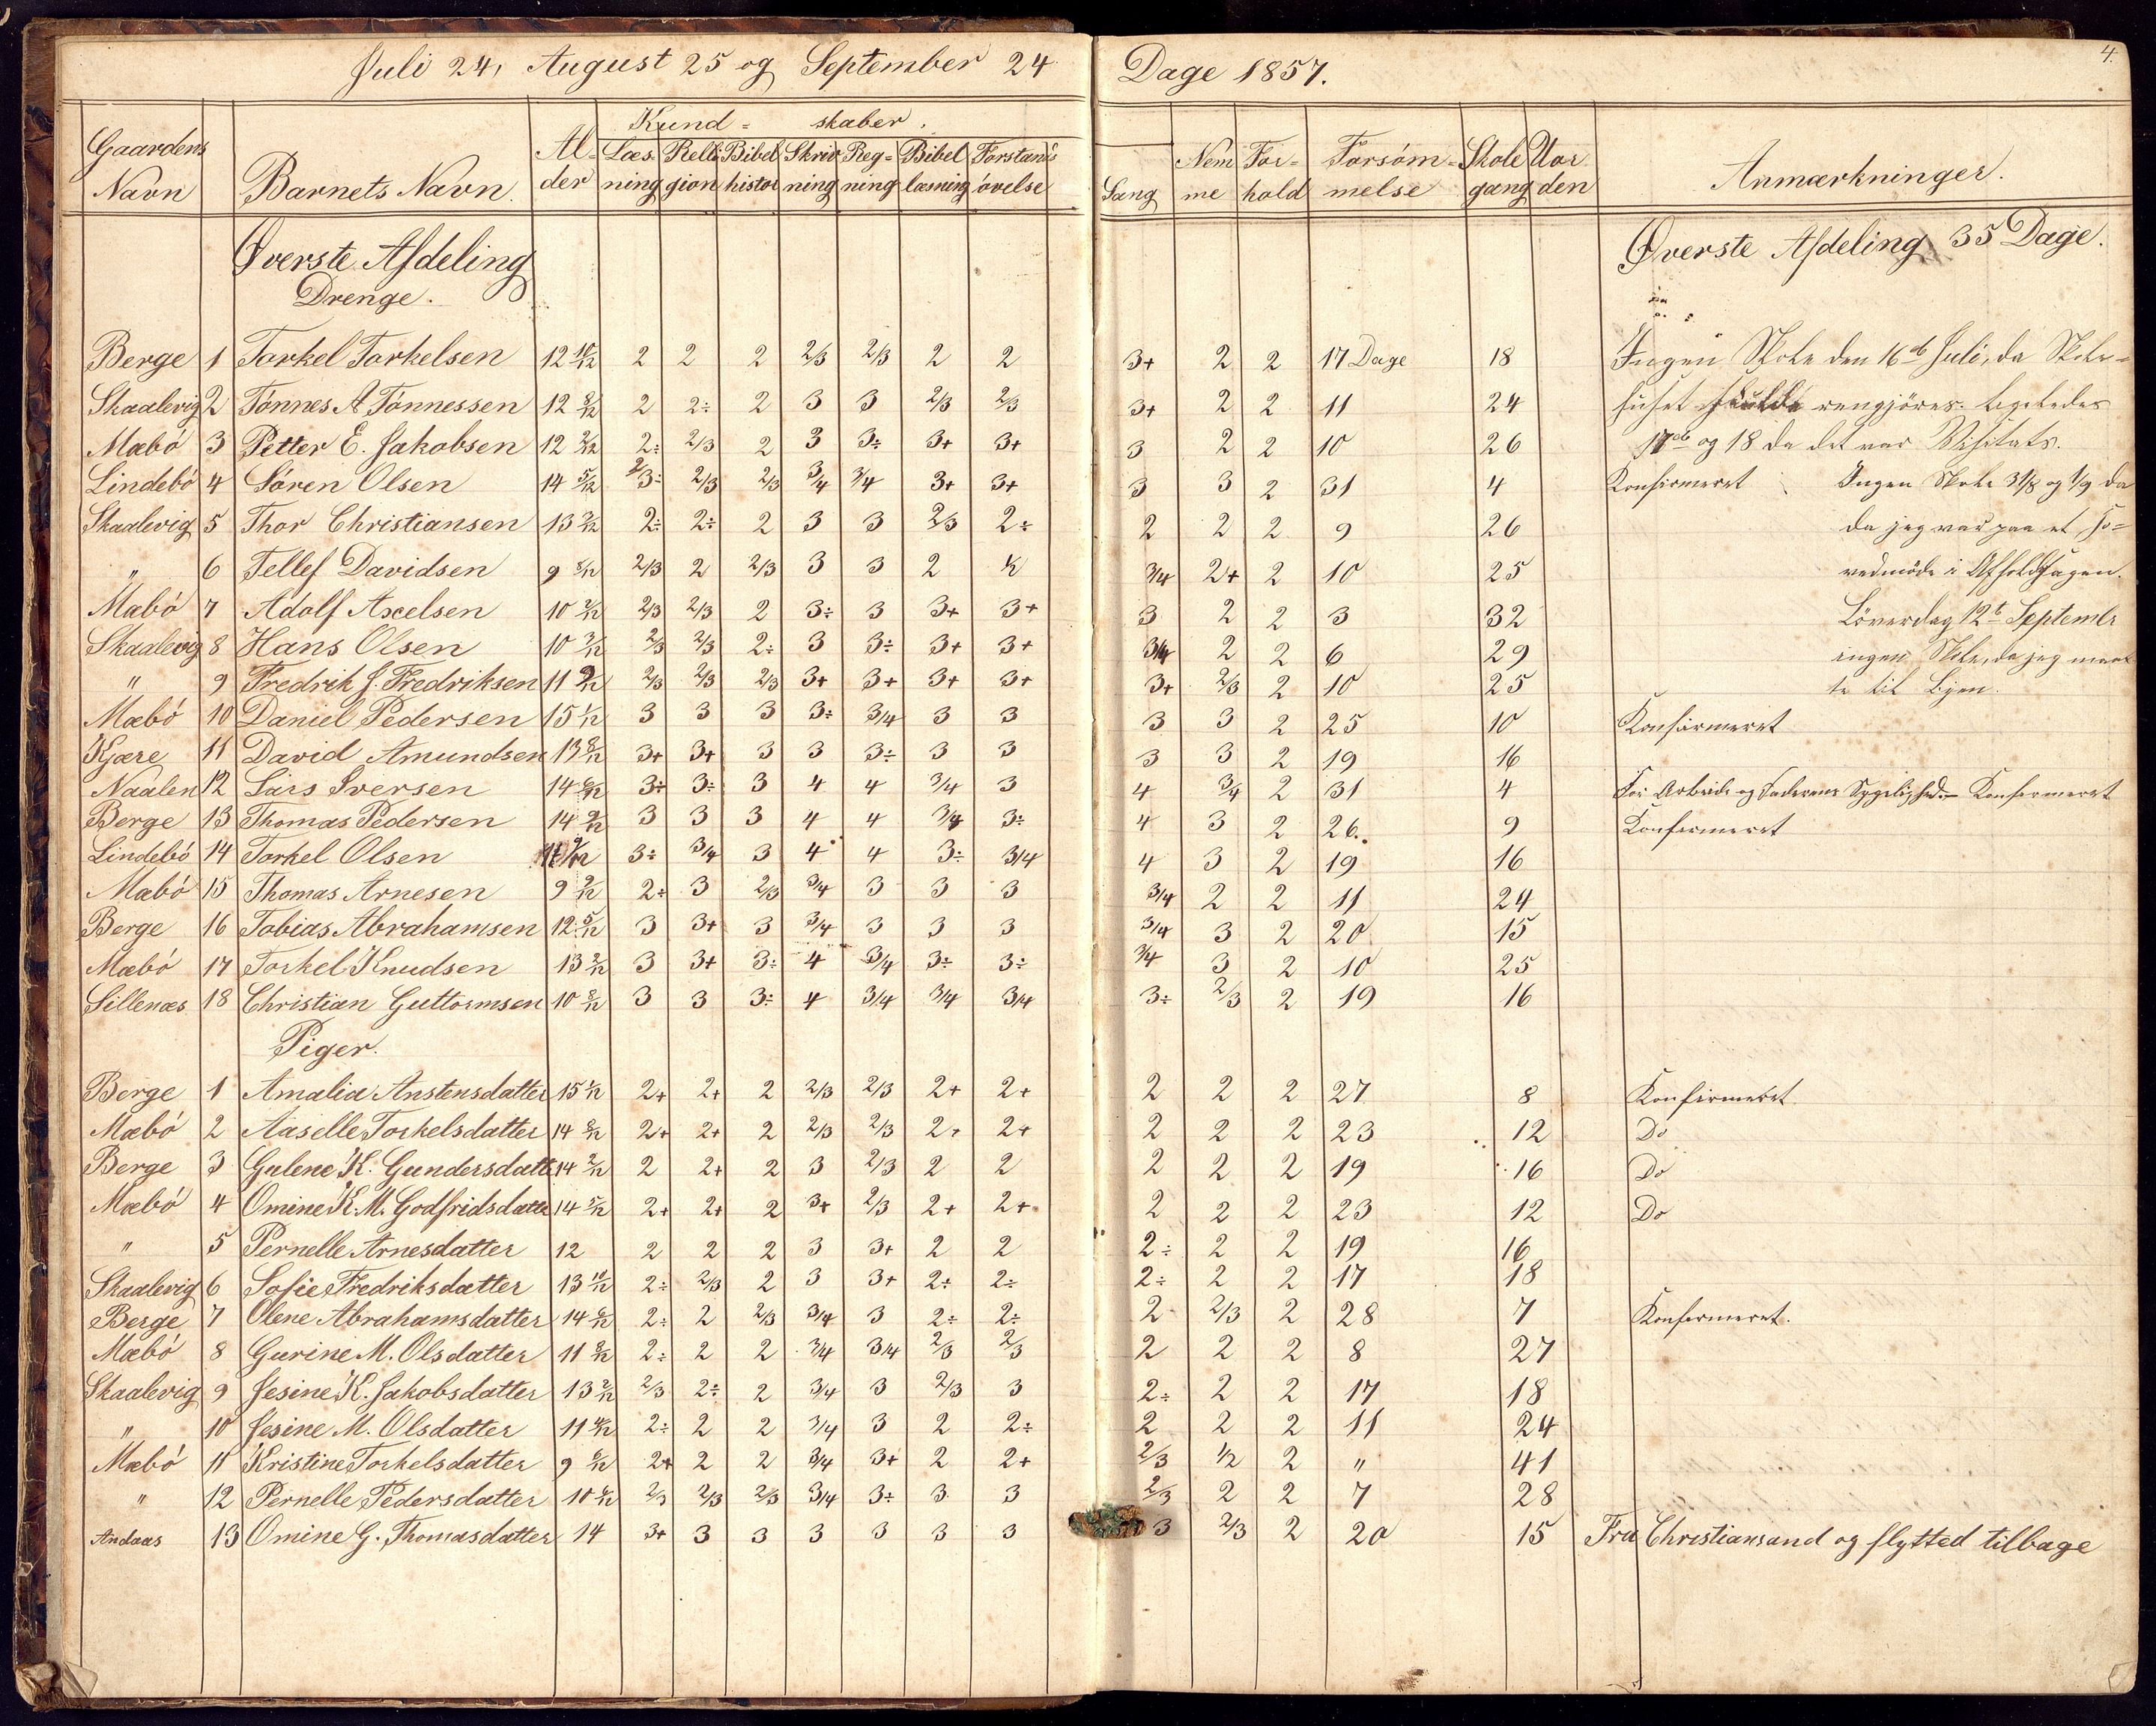 Juli 24, August 25 og September 24 Dage 1857.
4.
Gaardens Navn | Barnets Navn. | Al-der | Kund= skaber. | Læs ning | Reli gion | Bibel histor | Skriv ning | Reg= ning | Bibel læsning | Forstands øvelse | Sang | Nem me | For= hold | Forsøm= melse | Skole gang | Uor den | Anmærkninger.
Øverste Afdeling
Øverste Afdeling 35 Dage.
Drenge.
Berge 1 Torkel Torkelsen 12 10/12 2 2 2 2/3 2/3 2 2 3+ 2 2 17 Dage 18 Ingen Skole den 16de Juli, da Skole=
Skaalevig 2 Tönnes A Tönnessen 12 8/12 2 2÷ 2 3 3 2/3 2/3 3+ 2 2 11 24 huset skulde rengjöres. Ligeledes
Mæbö 3 Petter E. Jakobsen 12 2/12 2÷ 2/3 2 3 3÷ 3+ 3+ 3 2 2 10 26 17de og 18 da det var Visitats.
Lindebö 4 Sören Olsen 14 5/12 2/3÷ 2/3 2/3 3/4 3/4 3+ 3+ 3 3 2 31 4 Konfirmeret Ingen Skole 31/8 og 1/9 da
Skaalevig 5 Thor Christiansen 13 3/12 2÷ 2÷ 2 3 3 2/3 2÷ 2 2 2 9 26 da jeg var paa et Ho=
" 6 Tellef Davidsen 9 8/12 2/3 2 2/3 3 3 2 3/4 2+ 2 10 25 vedmöde i Afholdssagen.
Mæbö 7 Adolf Axelsen 10 2/12 2/3 2/3 2 3÷ 3 3+ 3+ 3 2 2 3 32 Löverdag 12te Septembr
Skaalevig 8 Hans Olsen 10 3/12 2/3 2/3 2÷ 3 3÷ 3+ 3+ 3/4 2 2 6 29 ingen Skole, da jeg
" 9 Fredrik J. Fredriksen 11 9/12 2/3 2/3 2/3 3+ 3+ 3+ 3+ 3+ 2/3 2 10 25 te til Byen.
Mæbö 10 Daniel Pedersen 15 1/12 3 3 3 3÷ 3/4 3 3 3 3 2 25 10 Konfirmeret
Kjære 11 David Amundsen 13 8/12 3+ 3+ 3 3 3÷ 3 3 3 3 2 19 16
Naalen 12 Lars Iversen 14 6/12 3÷ 3÷ 3 4 4 3/4 3 4 3/4 2 31 4 For Arbeide og Faderens Sygelighed.— Konfirmeret
Berge 13 Thomas Pedersen 14 9/12 3 3 3 4 4 3/4 3÷ 4 3 2 26. 9 Konfirmeret
Lindebö 14 Torkel Olsen 3÷ 3/4 3 4 4 3÷ 3/4 4 3 2 19 16
Mæbö 15 Thomas Arnesen 9 9/12 2÷ 3 2/3 3/4 3 3 3 3/4 2 2 11 24
Berge 16 Tobias Abrahamsen 12 5/12 3 3+ 3 3/4 3 3 3 3/4 3 2 20 15
Mæbö 17 Torkel Knudsen 13 2/12 3 3+ 3÷ 4 3/4 3÷ 3÷ 3/4 3 2 10 25
Sillenæs 18 Christian Guttormsen 10 8/12 3 3 3÷ 4 3/4 3/4 3/4 3÷ 2/3 2 19 16
Piger.
Berge 1 Amalia Anstensdatter 15 1/12 2+ 2+ 2 2/3 2/3 2+ 2+ 2 2 2 27 8 Konfirmeret
Mæbö 2 Aaselle Torkelsdatter 14 8/12 2+ 2+ 2 2/3 2/3 2+ 2+ 2 2 2 23 12 Do
Berge 3 Gulene K. Gundersdatt 14 2/12 2 2+ 2 3 2/3 2 2 2 2 2 19 16 Do
Mæbö 4 Omine K. M. Godfridsdatte 14 5/12 2+ 2+ 2 3+ 2/3 2+ 2+ 2 2 2 23 12 Do
" 5 Pernelle Arnesdatter 12 2 2 2 3 3+ 2 2 2÷ 2 2 19 16
Skaalevig 6 Sofie Fredriksdatter 13 10/12 2÷ 2/3 2 3 3+ 2÷ 2÷ 2÷ 2 2 17 18
Berge 7 Olene Abrahamsdatter 14 6/12 2÷ 2 2/3 3/4 3 2÷ 2÷ 2 2/3 2 28 7 Konfirmeret.
Mæbö 8 Gurine M. Olsdatter 11 8/12 2÷ 2 2 3/4 3/4 2/3 2/3 2 2 2 8 27
Skaalevig 9 Jesine K. Jakobsdatter 13 2/12 2/3 2÷ 2 3/4 3 2/3 3 2÷ 2 2 17 18
" 10 Jesine M. Olsdatter 11 4/12 2÷ 2 2 3/4 3 2 2÷ 2 2 2 11 24
Mæbö 11 Kristine Torkelsdatter 9 6/12 2+ 2 2 3/4 3+ 2 2+ 2/3 1/2 2 " 41
" 12 Pernelle Pedersdatter 10 4/12 2/3 2/3 2/3 3/4 3÷ 3 3 2/3 2 2 7 28
Andaas 13 Omine G. Thomasdatter 14 3+ 3 3 3 3 3 3 3 2/3 2 20 15 Fra Christiansand og flytted tilbage